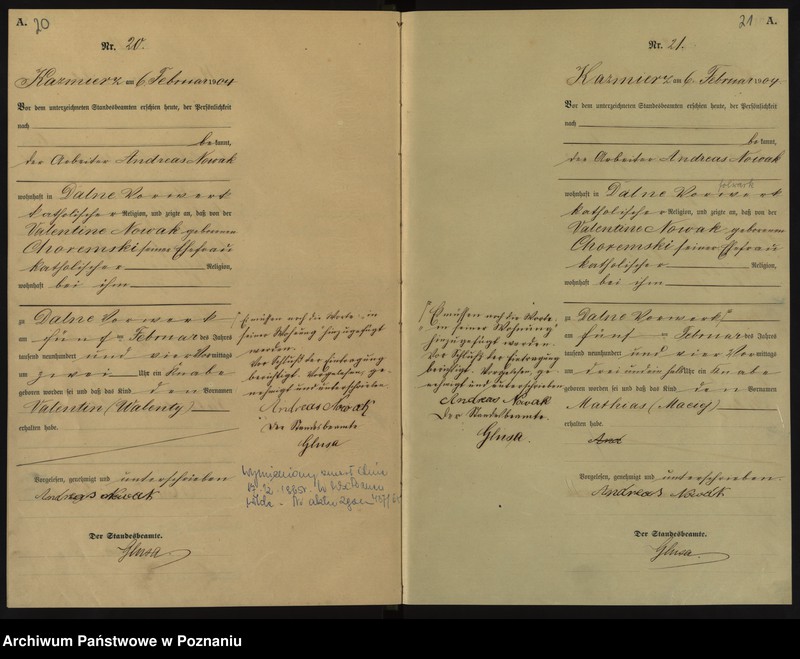 A. 20
Nr. 20.
Kazmierz am 6 Februar 1904
Vor dem unterzeichneten Standesbeamten erschien heute, der Persönlichkeit
nach
be kannt,
der Arbeiter Andreas Nowak
wohnhaft in Dalne Vorwerk
katholischer Religion, und zeigte an, daß von der
Valentine Nowak geborenen
Choremski seiner Ehefrau
katholischer Religion,
wohnhaft bei ihm
zu Dalne Vorwerk
am fünf ten Februar des Jahres
tausend neunhundert und vier Vormittags
um zwei Uhr ein Knabe
geboren worden sei und daß das Kind den Vornamen
Valentin (Walenty)
erhalten habe.
Vorgelesen, genehmigt und unterschrieben
Andreas Nowak
Der Standesbeamte.
Glusa
Es müssen noch die Worte „in
seiner Wohnung" hinzugefügt
werden.
Vor Schluß der Eintragung
berichtigt. Vorgelesen, ge-
nehmigt und unterschrieben
Andreas Nowak
Der Standesbeamte
Glusa
Wymieniony zmarł dnia
Nr aktu zgonu
21 A.
Nr. 21.
Kazmierz am 6 Februar 1904
Vor dem unterzeichneten Standesbeamten erschien heute, der Persönlichkeit
nach
be kannt,
der Arbeiter Andreas Nowak
folwark
wohnhaft in Dalne Vorwerk
katholischer Religion, und zeigte an, daß von der
Valentine Nowak geborenen
Choremski seiner Ehefrau
katholischer Religion,
wohnhaft bei ihm
zu Dalne Vorwerk
am fünf ten Februar des Jahres
tausend neunhundert und vier Vormittags
um drei und ein halb Uhr ein Knabe
geboren worden sei und daß das Kind den Vornamen
Mathias (Maciej)
erhalten habe.
And
Vorgelesen, genehmigt und unterschrieben
Andreas Nowak
Der Standesbeamte.
Glusa
Es müssen noch die Worte
„in seiner Wohnung"
hinzugefügt werden.
Vor Schluß der Eintragung
berichtigt. Vorgelesen, ge-
nehmigt und unterschrieben
Andreas Nowak
Der Standesbeamte.
Glusa.
Archiwum Państwowe w Poznaniu